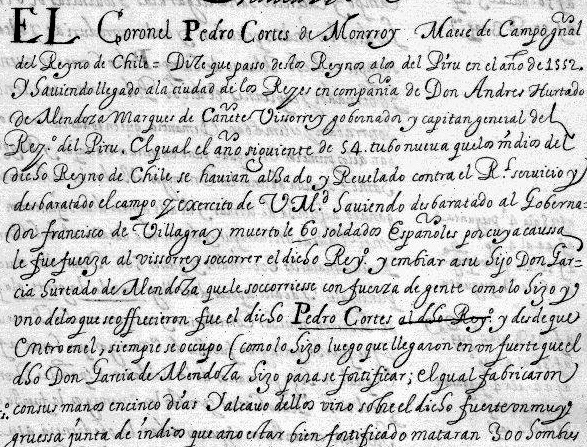 EL Coronel Pedro Cortes de Monrroy Maese de Campo gñal
del Reyno de Chile = Dize que passo destos Reynos a los del Piru en el año de 1552.
Y haviendo llegado a la ciudad de los Reyes en compañia de Don Andres Hurtado
de Mendoza Marques de Cañete Vissorrey gobernador y capitan general del
Rey.º del Piru. El qual el año siguiente de 54. tubo nueva que los indios del
dicho Reyno de Chile se havian alsado y Revelado contra el R.l servicio y
desbaratado el campo y exercito de V M.d haviendo desbaratado al Goberna-
dor francisco de Villagra y muerto le 60 soldados Españoles por cuya caussa
le fue fuerza al vissorrey socorrer el dicho Rey.º y embiar a su hijo Don Gar-
cia hurtado de Mendoza que le socorriesse con fuerza de gente como lo hizo y
vno de los que se offrecieron fue el dicho Pedro Cortes al dho Rey.º y desde que
entro en el, siempre se occupo (como lo hizo luego que llegaron en vn fuerte que el
dho Don Garcia de Mendoza hizo para se fortificar; el qual fabricaron
con sus manos en cinco dias y al cavo dellos vino sobre el dicho fuerte vn muy
gruessa junta de indios que a no estar bien fortificado mataran 300 hombres